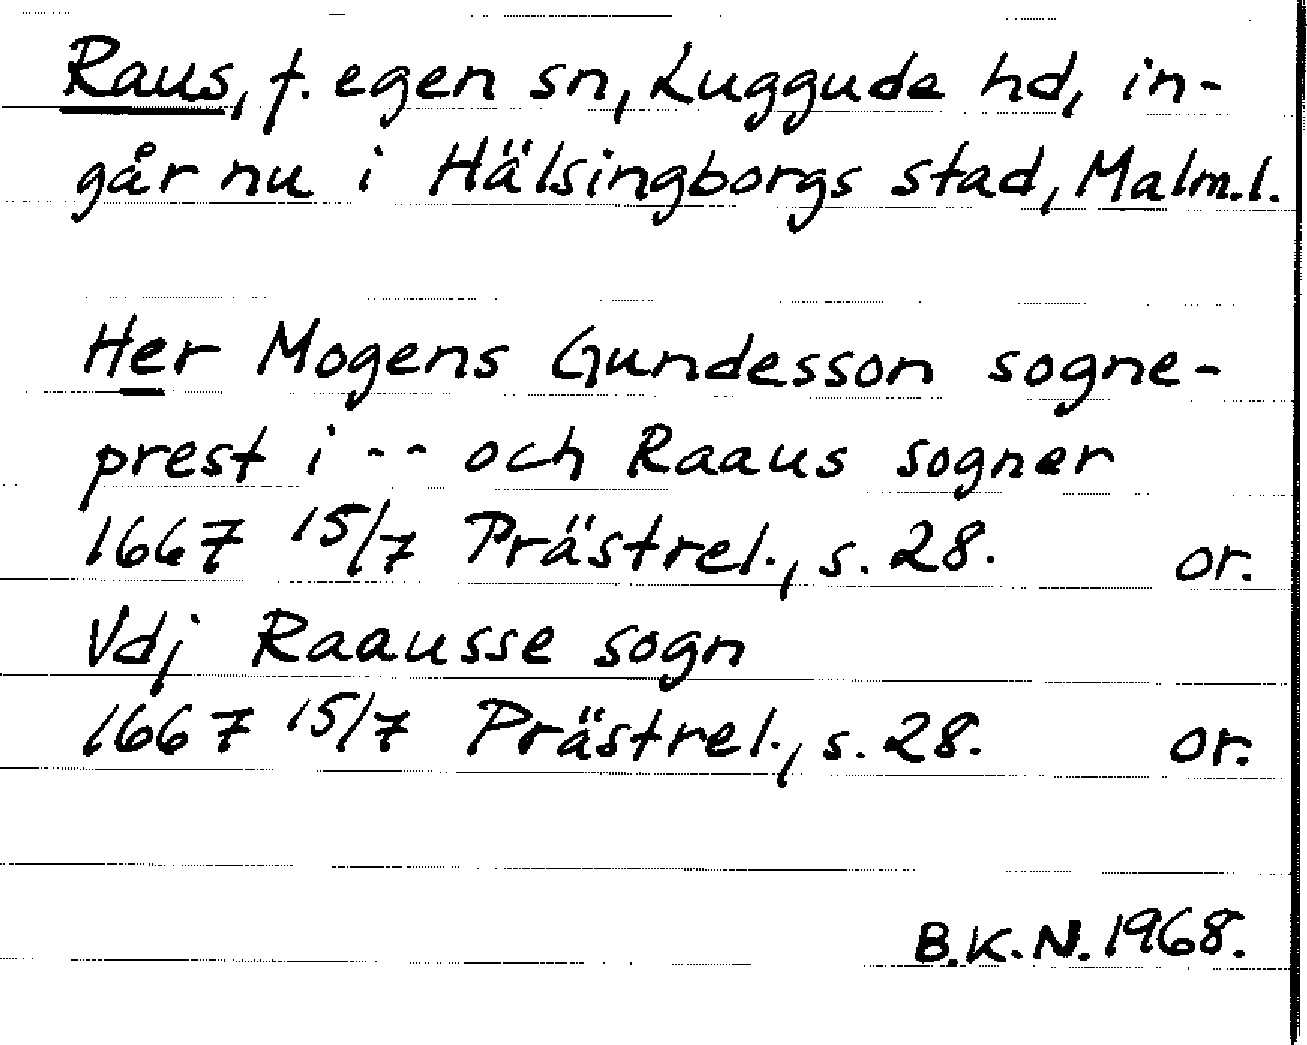 Raus, f. egen sn, Luggude hd, in-
går nu i Hälsingborgs stad, Malm.l.
Her Mogens Gundesson sogne-
prest i -- och Raaus sogner
1667 15/7 Prästrel., s. 28. or.
Vdj Raausse sogn
1667 15/7 Prästrel., s. 28. or.
B.K.N. 1968.